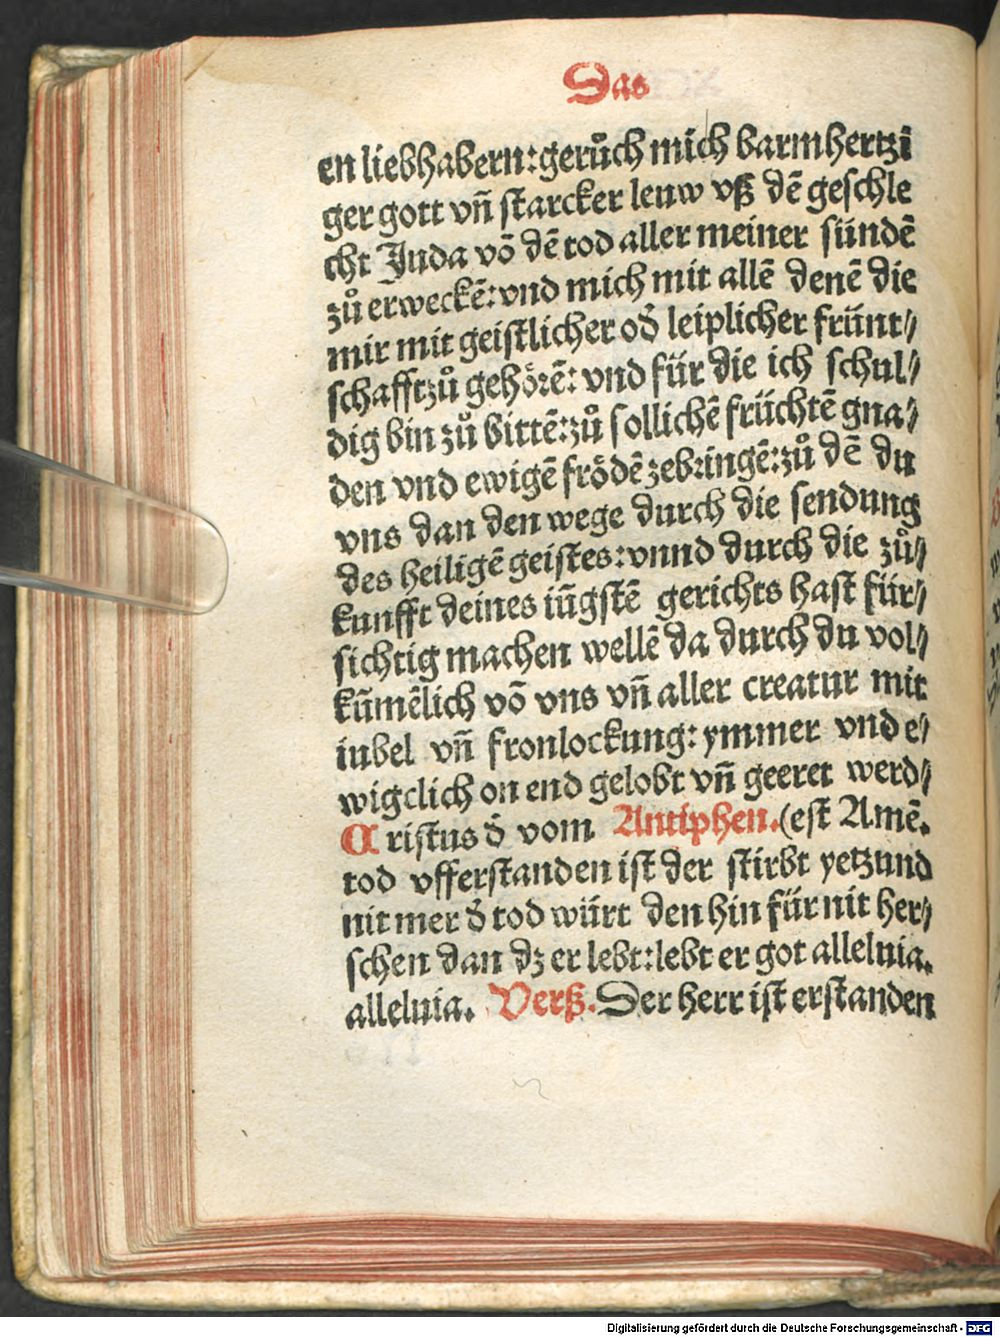 Das
en liebhabern: gerůch mich barmhertzi
ger gott vn̄ starcker leuw vß dē geschle
cht Juda vō dē tod aller meiner sündē
zů erweckē: vnd mich mit allē denē die
mir mit geistlicher od̄ leiplicher frünt⸗
schafft zů gehörē: vnd für die ich schul⸗
dig bin zů bittē: zů sollichē früchtē gna⸗
den vnd ewigē frödē zebringē: zů dē du
vns dan den wege durch die sendung
des heiligē geistes: vnnd durch die zů⸗
kunfft deines iūgstē gerichts hast für⸗
sichtig machen wellē da durch du vol⸗
kūmēlich vō vns vn̄ aller creatur mit
iubel vn̄ fronlockung: ymmer vnd e⸗
wigclich on end gelobt vn̄ geeret werd⸗
Cristus d̄ vom Antiphen. (est Amē.
tod vfferstanden ist der stirbt yetzund
nit mer d̄ tod würt den hin für nit her⸗
schen dan dz er lebt: lebt er got alleluia.
alleluia. Verß. Der herr ist erstanden
Digitalisierung gefördert durch die Deutsche Forschungsgemeinschaft - DFG